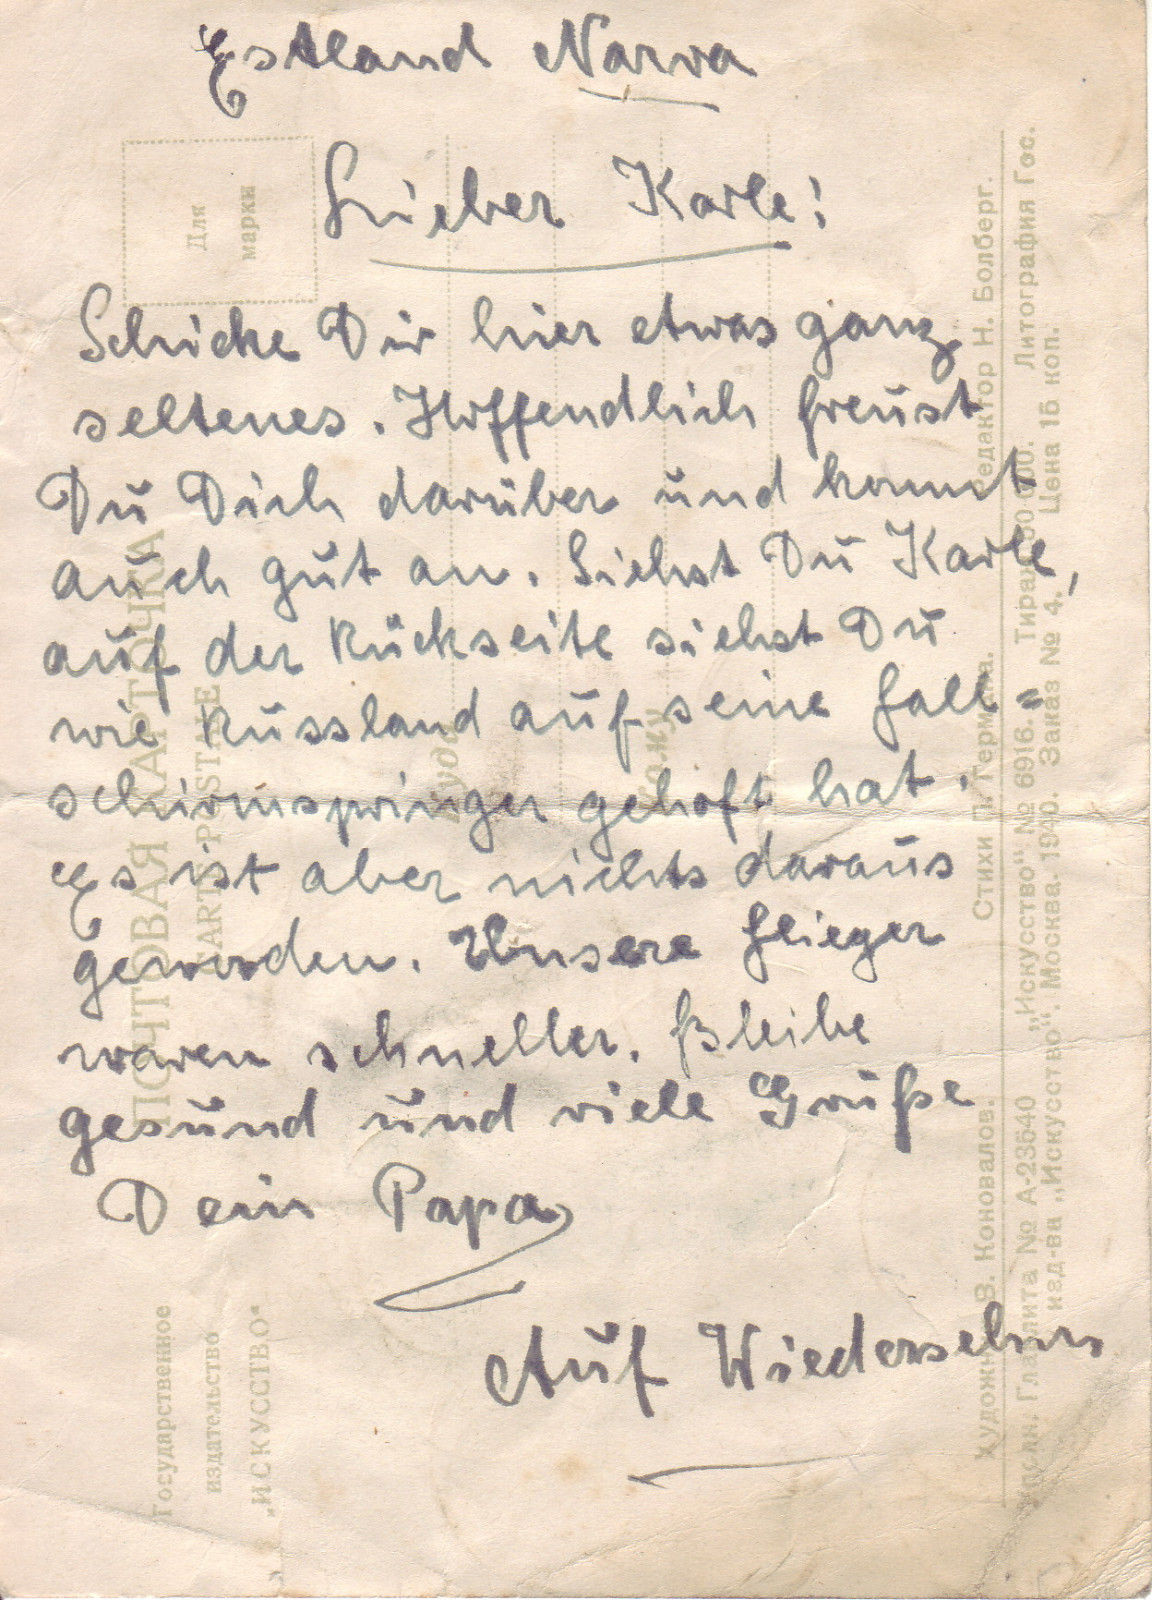 Estland Narva
Lieber Karle!
Schicke Dir hier etwas ganz
seltenes. Hoffendlich freust
Du Dich darüber und kommt
auch gut an. Siehst Du Karle,
auf der Rückseite siehst Du
wie Russland auf seine Fall=
schirmspringer gehoft hat.
Es ist aber nichts daraus
geworden. Unsere Flieger
waren schneller. Bleibe
gesund und viele Grüße
Dein Papa
Auf Wiedersehen
Для
марки
ПОЧТОВАЯ КАРТОЧКА
CARTE POSTALE
Куда
Кому
Государственное
издательство
„ИСКУССТВО“
В. Коновалов. Стихи П. Германа. Редактор Н. Болберг.
Главлита № А-23540 „Искусство“ № 6916. Тираж 50 000. Литография Гос.
изд-ва „Искусство“. Москва. 1940. Заказ № 4. Цена 15 коп.